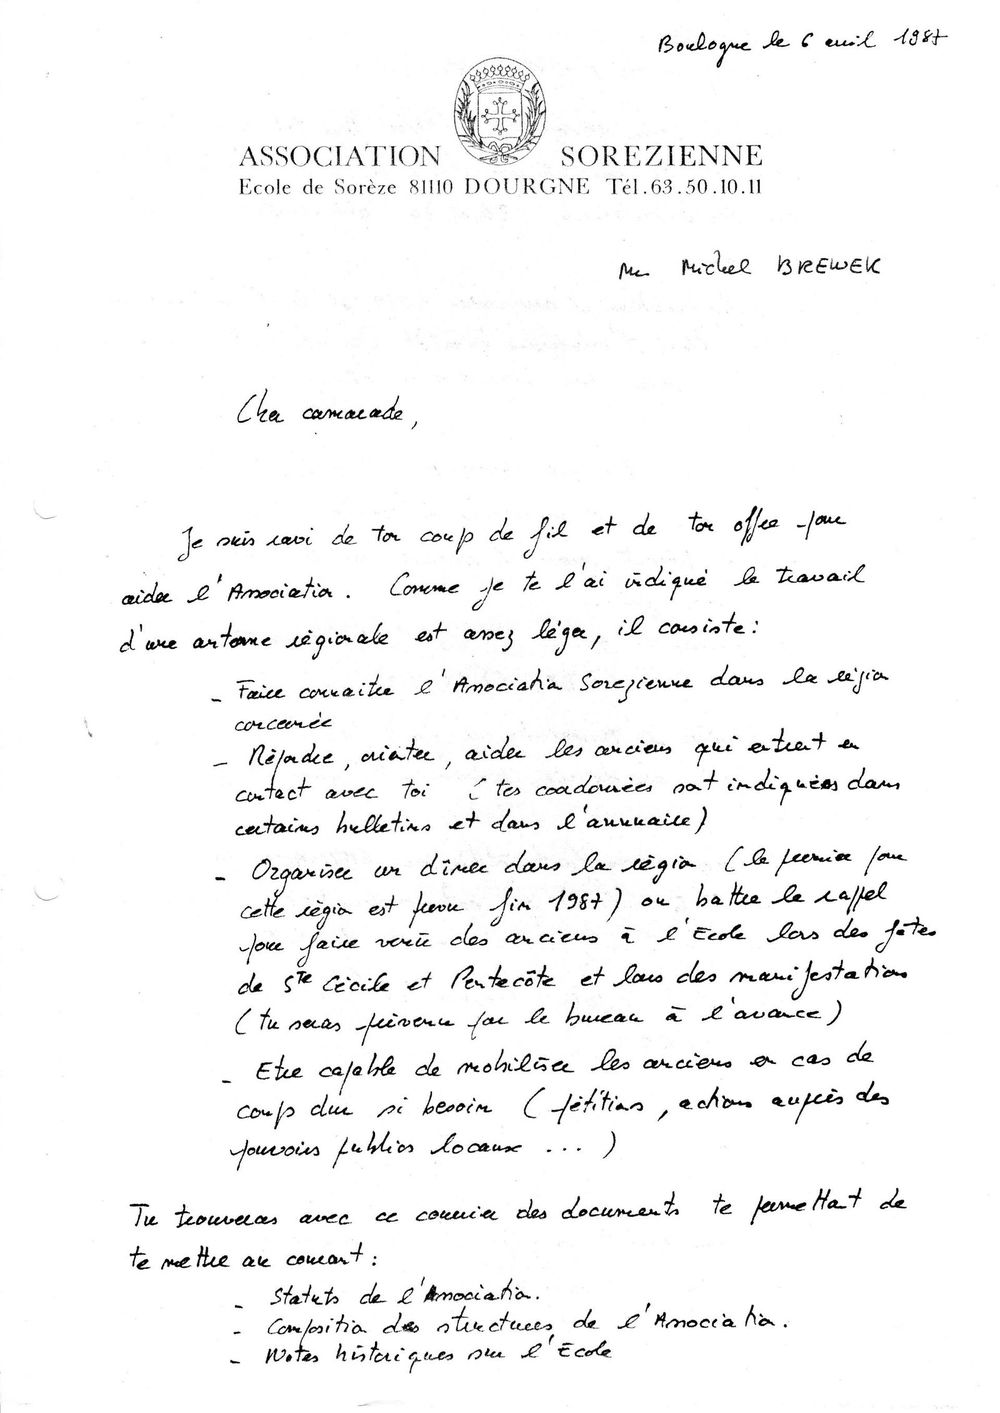 Boulogne le 6 avril 1987
ASSOCIATION SOREZIENNE
Ecole de Sorèze 81110 DOURGNE Tél. 63.50.10.11
Mr Michel BREWEK
Cher camarade,
Je suis ravi de ton coup de fil et de ton offre pour
aider l'Association. Comme je te l'ai indiqué le travail
d'une antenne régionale est assez léger, il consiste :
- Faire connaitre l'Association Sorezienne dans la région
concernée
- Répondre, orienter, aider les anciens qui entrent en
contact avec toi (tes coordonnées sont indiquées dans
certains bulletins et dans l'annuaire)
- Organiser un dîner dans la région (le premier pour
cette région est prévu fin 1987) ou battre le rappel
pour faire venir des anciens à l'Ecole lors des fêtes
de Ste Cécile et Pentecôte et lors des manifestations
(tu seras prévenu par le bureau à l'avance)
- Etre capable de mobiliser les anciens en cas de
coup dur si besoin (pétitions, actions auprès des
pouvoirs publics locaux ...)
Tu trouveras avec ce courrier des documents te permettant de
te mettre au courant :
- Statuts de l'Association.
- Composition des structures de l'Association.
- Notes historiques sur l'Ecole